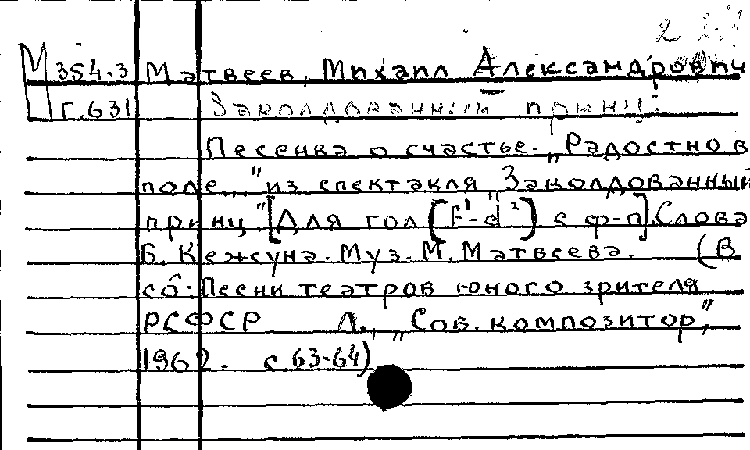 М 354.3 Матвеев, Михаил Александрович
Г.631 Заколдованный принц.
Песенка о счастье. „Радостно в
поле..." из спектакля „Заколдованный
принц". [Для гол (f¹-d²) с ф-п]. Слова
Б. Кежуна. Муз. М. Матвеева. (В
сб: Песни театров юного зрителя
РСФСР Л., „Сов. композитор,"
1962. с 63-64)